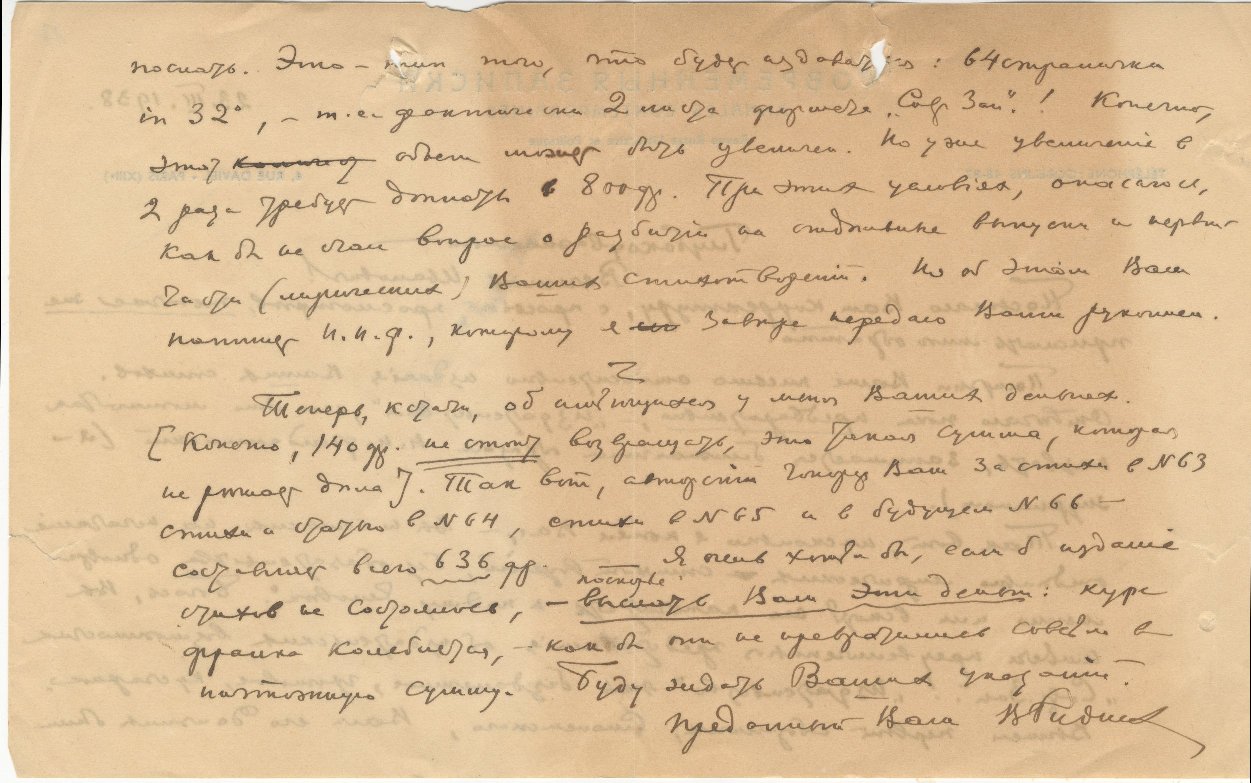 послать. Это – тип того, что будет издаваться: 64 странички
in 32°, – т.е. фактически 2 листа формата „Совр. Зап."! Конечно,
этот объем может быть увеличен. Но уже увеличение в
2 раза требует доплаты в 800 фр. При этих условіях, опасаюсь,
как бы не стал вопрос о разбитіи на отдельные выпуски и первой
части (лирических) Ваших стихотвореній. Но об этом Вам
напишет И.И.Ф., которому я завтра передаю Ваши рукописи.
Теперь, кстати, об имеющихся у меня Ваших деньгах.
[Конечно, 140 фр. не стоит возвращать, это такая сумма, которая
не решает дела]. Так вот, авторскій гонорар Ваш за стихи в N 63
стихи и статью в N 64, стихи в N 65 и в будущем N 66 –
составляет всего 636 фр. Я очень хотел бы, если б изданіе
поскорее
стихов не состоялось, – выслать Вам эти деньги: курс
франка колеблется, – как бы они не превратились совсем в
ничтожную сумму. Буду ждать Ваших указаній.
Преданный Вам В Руднев